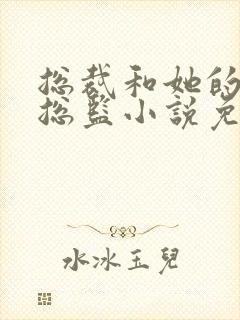 总裁和她的
总监小说免
水冰玉儿